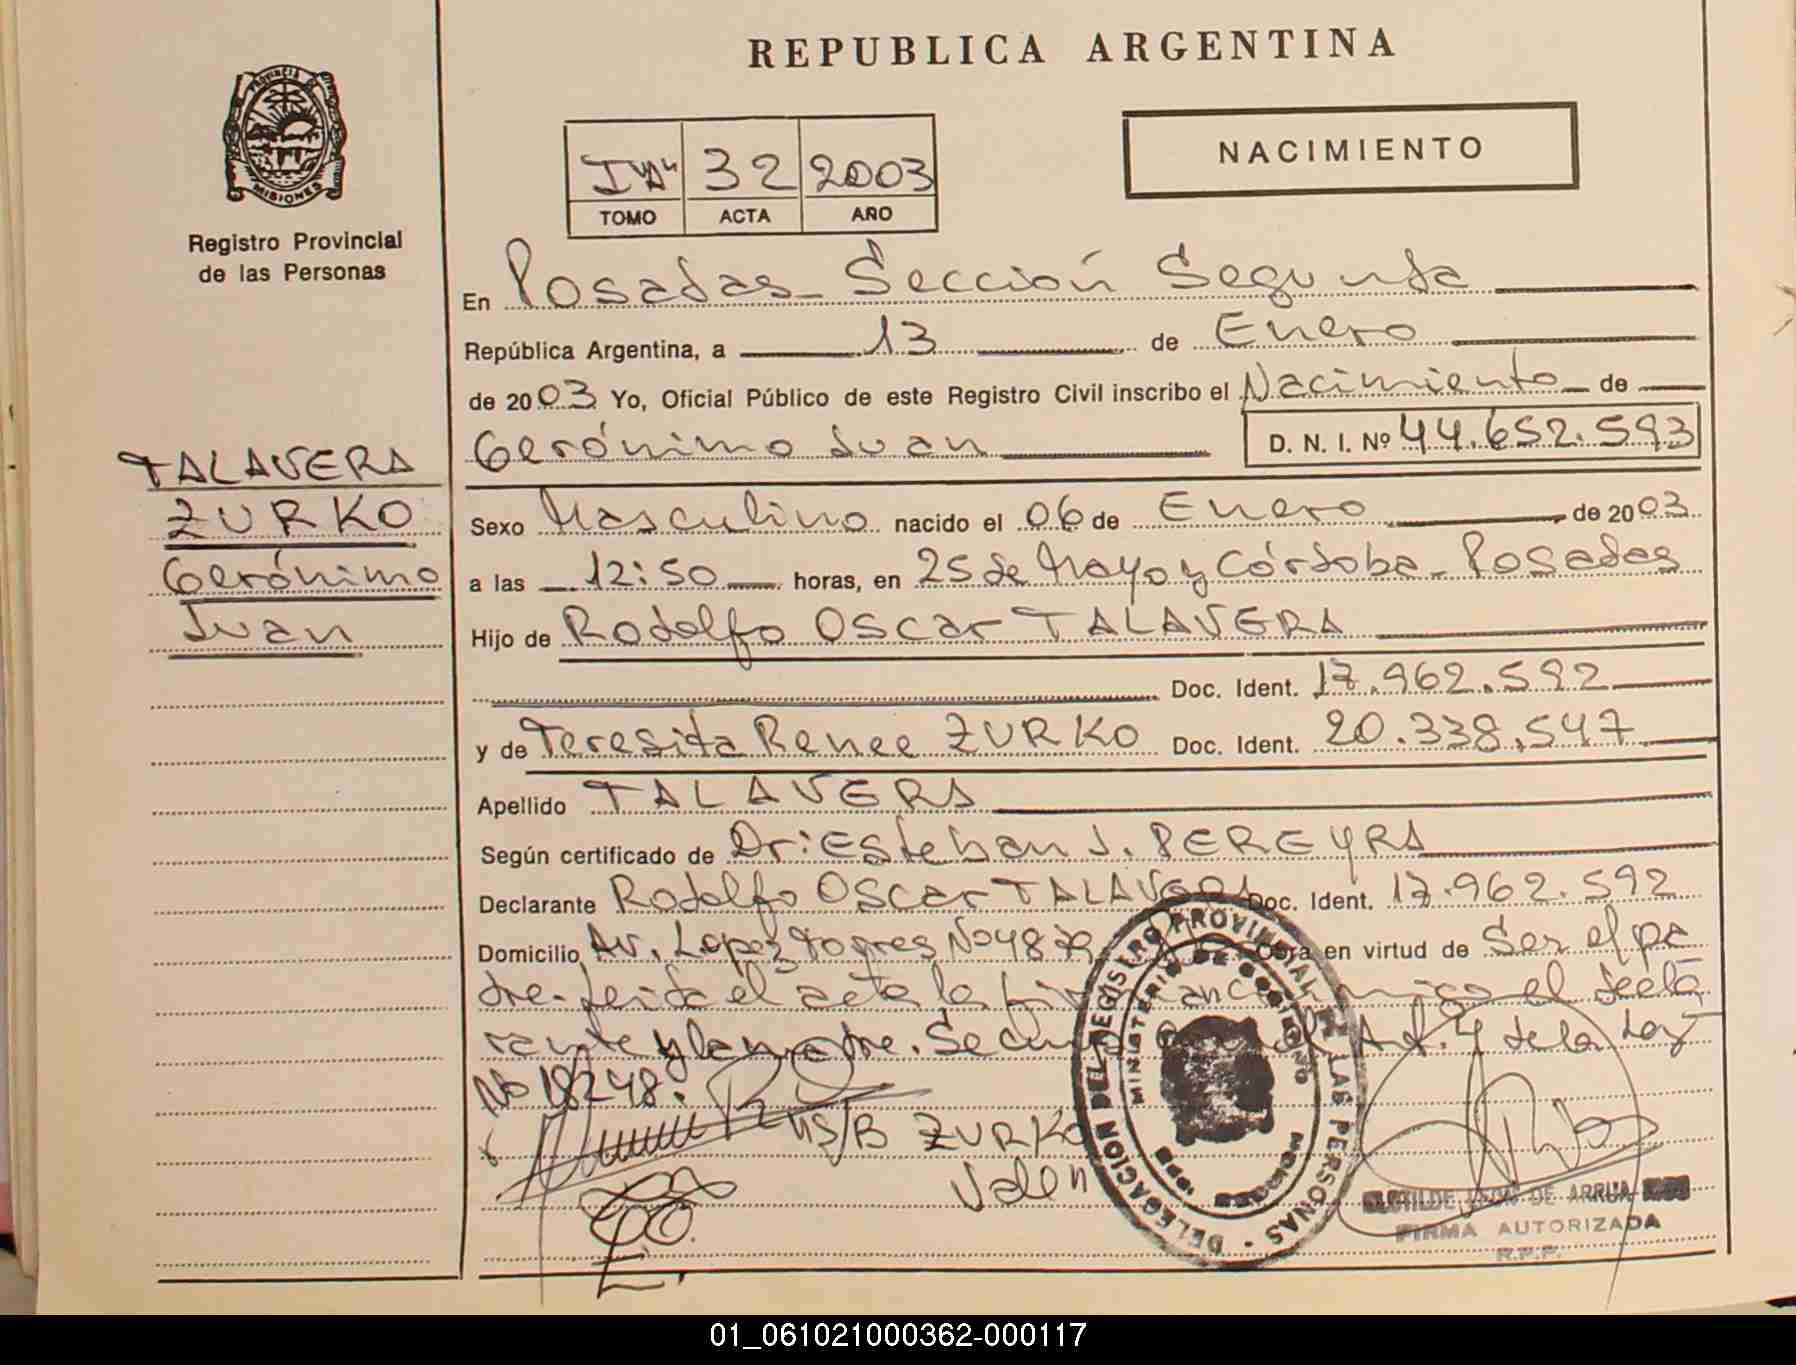 REPUBLICA ARGENTINA
PROVINCIA DE
MISIONES
Registro Provincial
de las Personas
I "A" 32 2003
TOMO ACTA AÑO
NACIMIENTO
En Posadas - Sección Segunda
República Argentina, a 13 de Enero
de 2003 Yo, Oficial Público de este Registro Civil inscribo el Nacimiento de
Gerónimo Juan D. N. I. Nº 44.652.593
TALAVERA
ZURKO
Gerónimo
Juan
Sexo Masculino nacido el 06 de Enero de 2003
a las 12:50 horas, en 25 de Mayo y Córdoba - Posadas
Hijo de Rodolfo Oscar TALAVERA
Doc. Ident. 17.962.592
y de Teresita Renee ZURKO Doc. Ident. 20.338.547
Apellido TALAVERA
Según certificado de Dr: Esteban J. PEREYRA
Declarante Rodolfo Oscar TALAVERA Doc. Ident. 17.962.592
Domicilio Av. Lopez Torres No Obra en virtud de Ser el pa
dre - Leida el acta la conmigo el decla
rante y la madre. Se Art. 4 de la Ley
No 18248.
S/B ZURKO
Valen
DELEGACION DEL REGISTRO PROVINCIAL DE LAS PERSONAS
MINISTERIO DE GOBIERNO
CLOTILDE DE ARRUA
FIRMA AUTORIZADA
R.P.P.
01_061021000362-000117